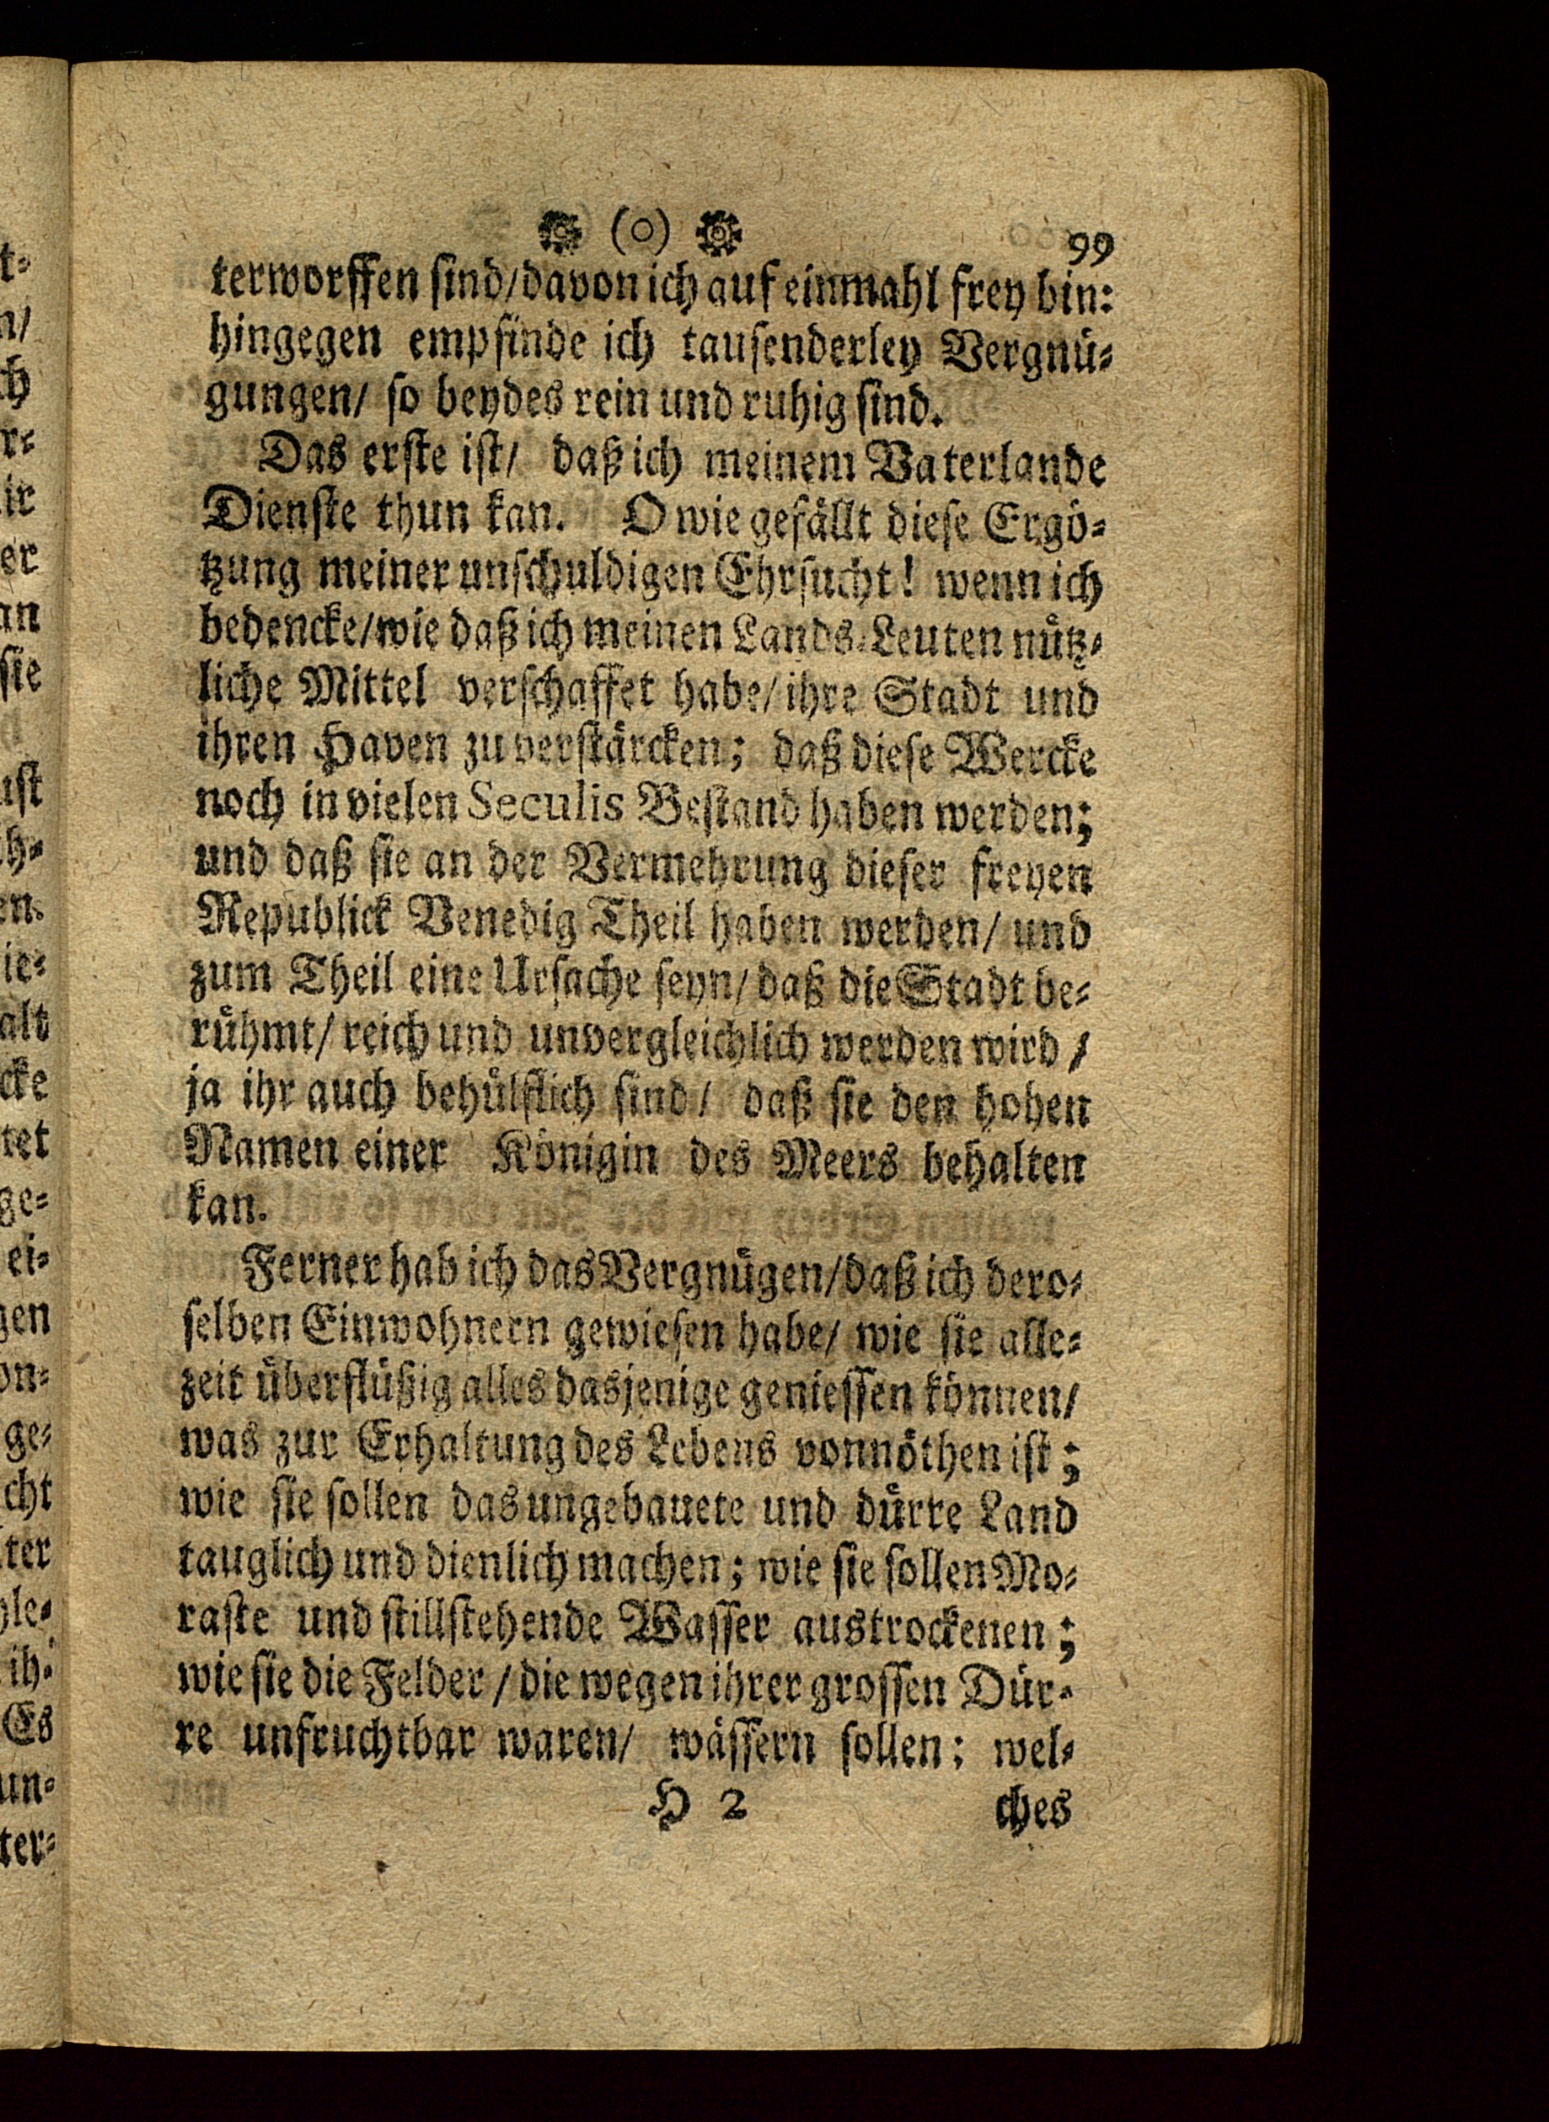 (o) 99
terworffen sind/davon ich auf einmahl frey bin:
hingegen empfinde ich tausenderley Vergnü-
gungen/ so beydes rein und ruhig sind.
Das erste ist/ daß ich meinem Vaterlande
Dienste thun kan. O wie gefällt diese Ergö-
tzung meiner unschuldigen Ehrsucht! wenn ich
bedencke/wie daß ich meinen Lands-Leuten nütz-
liche Mittel verschaffet habe/ihre Stadt und
ihren Haven zu verstärcken; daß diese Wercke
noch in vielen Seculis Bestand haben werden;
und daß sie an der Vermehrung dieser freyen
Republick Venedig Theil haben werden/ und
zum Theil eine Ursache seyn/ daß die Stadt be-
rühmt/ reich und unvergleichlich werden wird /
ja ihr auch behülflich sind/ daß sie den hohen
Namen einer Königin des Meers behalten
kan.
Ferner hab ich das Vergnügen/daß ich dero-
selben Einwohnern gewiesen habe/ wie sie alle-
zeit überflüßig alles dasjenige geniessen können/
was zur Erhaltung des Lebens vonnöthen ist;
wie sie sollen das ungebauete und dürre Land
tauglich und dienlich machen; wie sie sollen Mo-
raste und stillstehende Wasser austrockenen;
wie sie die Felder / die wegen ihrer grossen Dür-
re unfruchtbar waren/ wässern sollen; wel-
H 2 ches